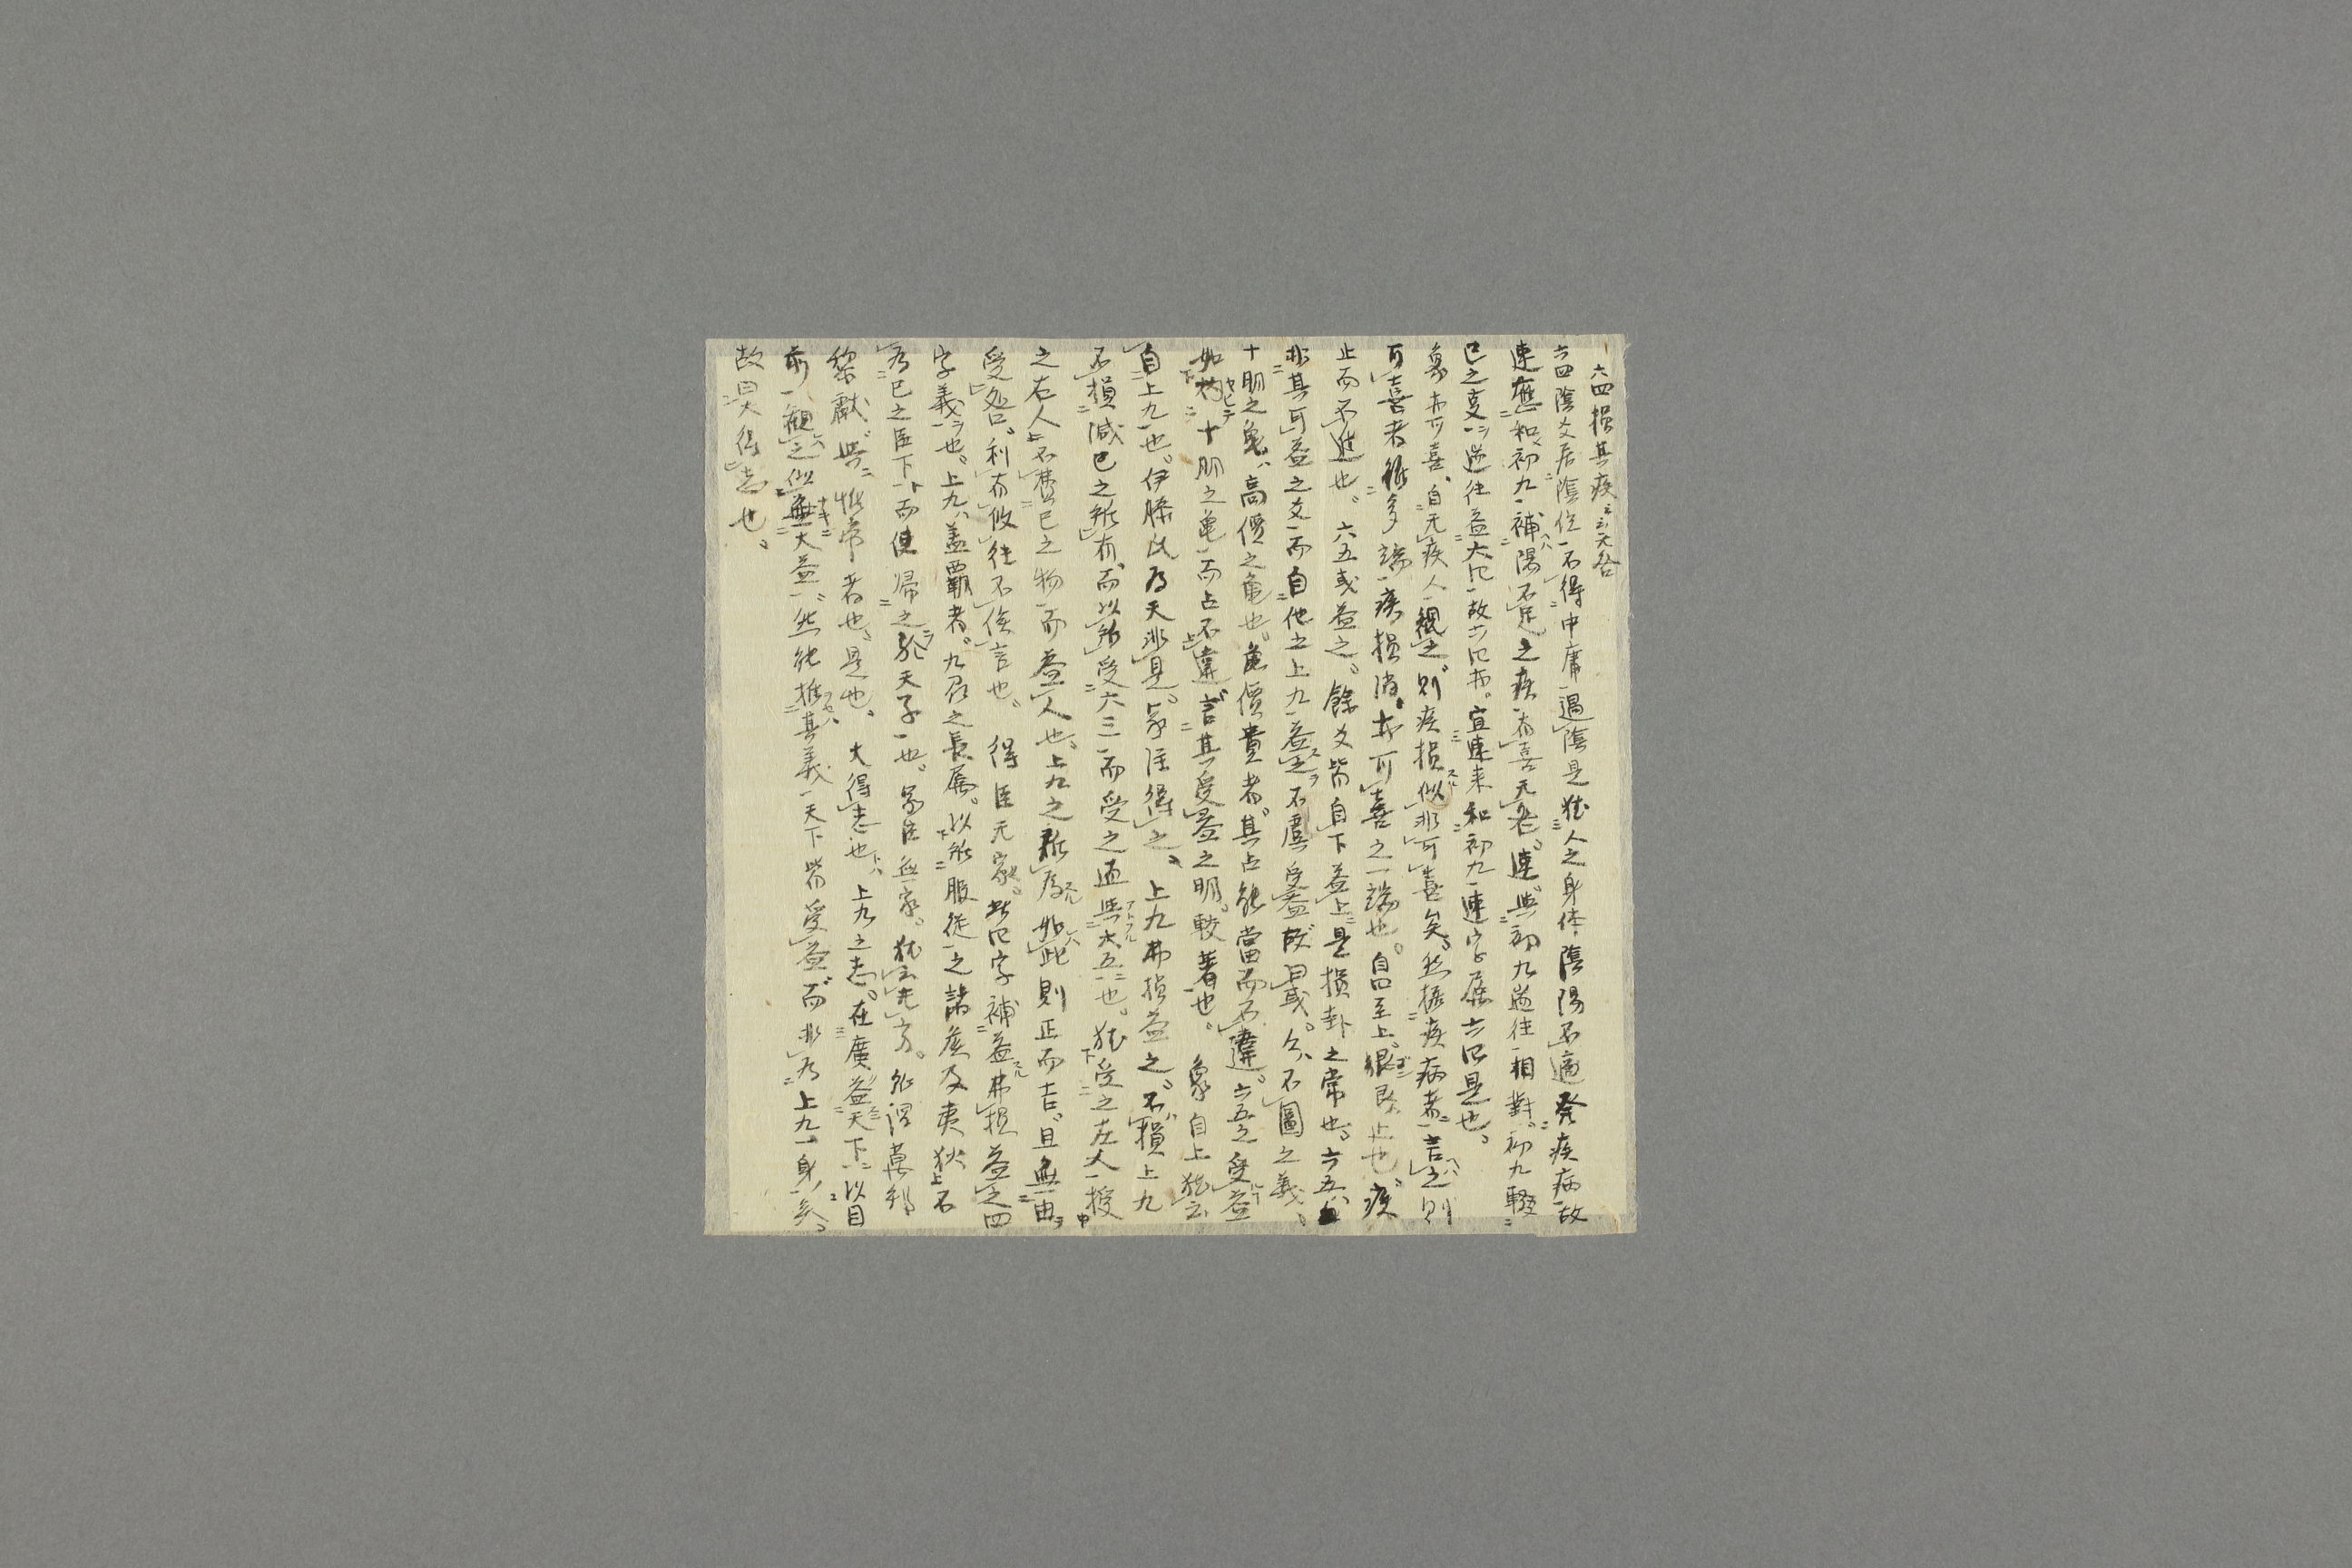 六四損其疾云云天咎
六四陰爻居陰位不得中庸過陰是猶人之身体陰陽不適発疾病故
速應和初九補陽不足之疾有喜无咎速与初九遄往相對初九輟
已之事遄往益六四故六四亦宜速来和初九速字屬六四是也
象亦可喜自无疾人観之則疾損似非可喜矣然據疾病者言之則
可喜者雖多端疾損消亦可喜之一端也自四至上艮止也疾
止而不進也六五或益之餘爻皆自下益上是損卦之常也六五
非其可益之爻而自他之上九益之不虞受益故曰或不圖之義
十朋之亀高價之亀也亀價貴者其占能當而不違六五之受益
如灼十朋之亀而占不違言其受益之明較著也 象自上猶云
自上九也伊藤氏為天非是象注得之 上九弗損益之不損上九
不損減已之所有而以所受六三而受之直与六五也猶受之左人授
之右人不費已之物而益人也上九之所為如此則正而吉且無由
受咎利有攸往不俟言也 得臣无家此四字補益弗損益之四
字義也上九蓋覇者九爻之長属以所服從之諸侯及夷狄不
為已之臣下而使歸之於天子也得臣無家猶云无方所謂萬邦
黎獻共惟帝者也是也 大得志也上九之志在廣益天下以目
前観之似無大益然能推其義天下皆受益而非為上九一身矣
故曰大得志也